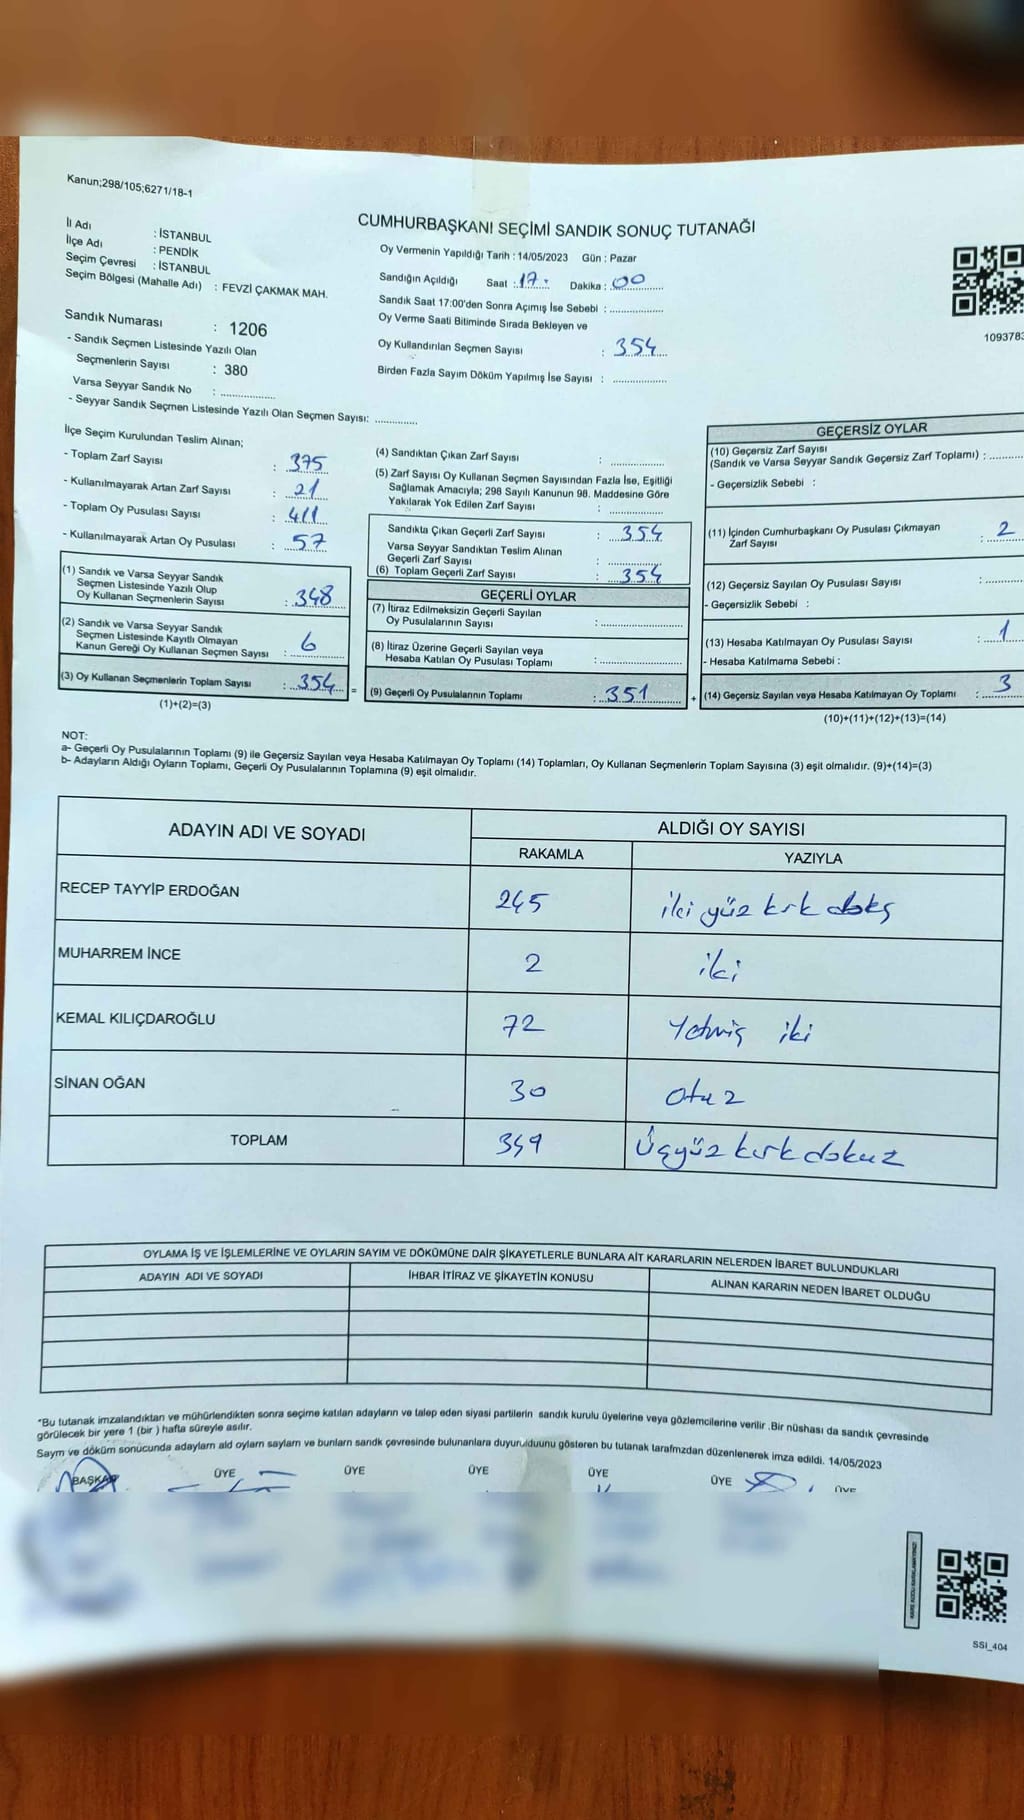 Kanun;298/105;6271/18-1
CUMHURBAŞKANI SEÇİMİ SANDIK SONUÇ TUTANAĞI
İl Adı : İSTANBUL
İlçe Adı : PENDİK
Seçim Çevresi : İSTANBUL
Seçim Bölgesi (Mahalle Adı) : FEVZİ ÇAKMAK MAH.
Sandık Numarası : 1206
- Sandık Seçmen Listesinde Yazılı Olan
Seçmenlerin Sayısı : 380
Varsa Seyyar Sandık No : ..................
- Seyyar Sandık Seçmen Listesinde Yazılı Olan Seçmen Sayısı: ..............
Oy Vermenin Yapıldığı Tarih : 14/05/2023 Gün : Pazar
Sandığın Açıldığı Saat : 17 Dakika : 00
Sandık Saat 17:00'den Sonra Açımış İse Sebebi : ..................
Oy Verme Saati Bitiminde Sırada Bekleyen ve
Oy Kullandırılan Seçmen Sayısı : 354
Birden Fazla Sayım Döküm Yapılmış İse Sayısı : ..................
109378
İlçe Seçim Kurulundan Teslim Alınan;
- Toplam Zarf Sayısı : 375
- Kullanılmayarak Artan Zarf Sayısı : 21
- Toplam Oy Pusulası Sayısı : 411
- Kullanılmayarak Artan Oy Pusulası : 57
(1) Sandık ve Varsa Seyyar Sandık
Seçmen Listesinde Yazılı Olup
Oy Kullanan Seçmenlerin Sayısı : 348
(2) Sandık ve Varsa Seyyar Sandık
Seçmen Listesinde Kayıtlı Olmayan
Kanun Gereği Oy Kullanan Seçmen Sayısı : 6
(3) Oy Kullanan Seçmenlerin Toplam Sayısı : 354 =
(1)+(2)=(3)
(4) Sandıktan Çıkan Zarf Sayısı : ..................
(5) Zarf Sayısı Oy Kullanan Seçmen Sayısından Fazla İse, Eşitliği
Sağlamak Amacıyla; 298 Sayılı Kanunun 98. Maddesine Göre
Yakılarak Yok Edilen Zarf Sayısı : ..................
Sandıkta Çıkan Geçerli Zarf Sayısı : 354
Varsa Seyyar Sandıktan Teslim Alınan
Geçerli Zarf Sayısı : ..................
(6) Toplam Geçerli Zarf Sayısı : 354
GEÇERLİ OYLAR
(7) İtiraz Edilmeksizin Geçerli Sayılan
Oy Pusulalarının Sayısı : ..................
(8) İtiraz Üzerine Geçerli Sayılan veya
Hesaba Katılan Oy Pusulası Toplamı : ..................
(9) Geçerli Oy Pusulalarının Toplamı : 351 +
GEÇERSİZ OYLAR
(10) Geçersiz Zarf Sayısı
(Sandık ve Varsa Seyyar Sandık Geçersiz Zarf Toplamı) : ..........
- Geçersizlik Sebebi :
(11) İçinden Cumhurbaşkanı Oy Pusulası Çıkmayan
Zarf Sayısı : 2
(12) Geçersiz Sayılan Oy Pusulası Sayısı : ..........
- Geçersizlik Sebebi :
(13) Hesaba Katılmayan Oy Pusulası Sayısı : 1
- Hesaba Katılmama Sebebi :
(14) Geçersiz Sayılan veya Hesaba Katılmayan Oy Toplamı : 3
(10)+(11)+(12)+(13)=(14)
NOT:
a- Geçerli Oy Pusulalarının Toplamı (9) ile Geçersiz Sayılan veya Hesaba Katılmayan Oy Toplamı (14) Toplamları, Oy Kullanan Seçmenlerin Toplam Sayısına (3) eşit olmalıdır. (9)+(14)=(3)
b- Adayların Aldığı Oyların Toplamı, Geçerli Oy Pusulalarının Toplamına (9) eşit olmalıdır.
ADAYIN ADI VE SOYADI ALDIĞI OY SAYISI
RAKAMLA YAZIYLA
RECEP TAYYİP ERDOĞAN 245 iki yüz kırk
MUHARREM İNCE 2 iki
KEMAL KILIÇDAROĞLU 72 Yetmiş iki
SİNAN OĞAN 30 otuz
TOPLAM 349 Üçyüz kırk dokuz
OYLAMA İŞ VE İŞLEMLERİNE VE OYLARIN SAYIM VE DÖKÜMÜNE DAİR ŞİKAYETLERLE BUNLARA AİT KARARLARIN NELERDEN İBARET BULUNDUKLARI
ADAYIN ADI VE SOYADI İHBAR İTİRAZ VE ŞİKAYETİN KONUSU ALINAN KARARIN NEDEN İBARET OLDUĞU
*Bu tutanak imzalandıktan ve mühürlendikten sonra seçime katılan adayların ve talep eden siyasi partilerin sandık kurulu üyelerine veya gözlemcilerine verilir .Bir nüshası da sandık çevresinde
görülecek bir yere 1 (bir ) hafta süreyle asılır.
Sayım ve döküm sonucunda adaylarn ald oylarn saylarn ve bunlarn sandk çevresinde bulunanlara duyurulduunu gösteren bu tutanak tarafmzdan düzenlenerek imza edildi. 14/05/2023
BAŞKAN ÜYE ÜYE ÜYE ÜYE ÜYE ÜYE
SSI_404